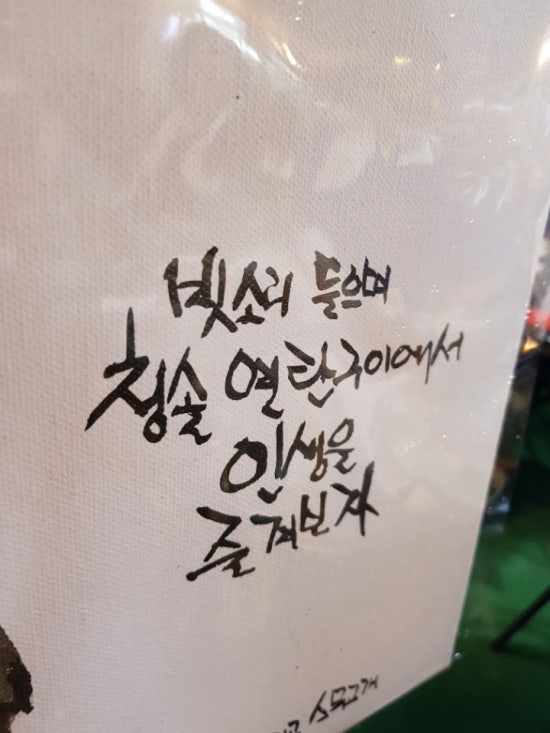 빗소리 들으며
청솔 연탄구이에서
인생을
즐겨보자
스무고개